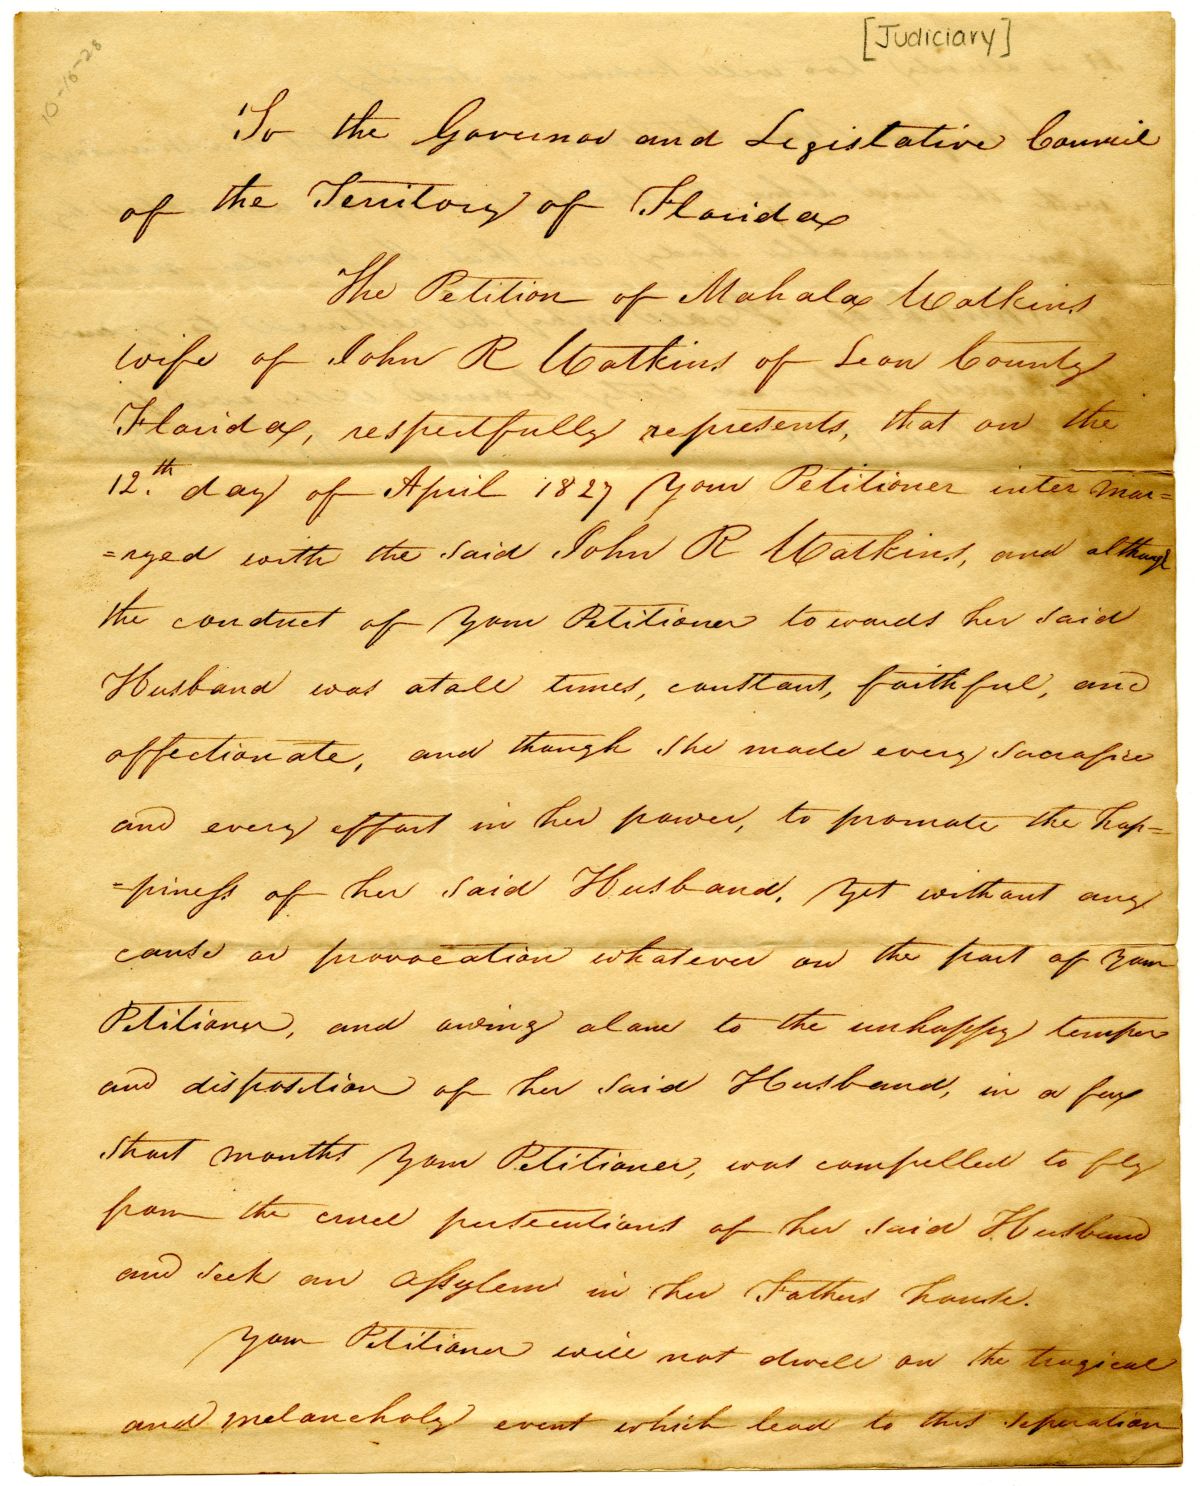 [Judiciary]
10-16-28
To the Governor and Legislative Council
of the Territory of Florida
The Petition of Mahala Watkins
wife of John R Watkins of Leon County
Florida, respectfully represents, that on the
12.th day of April 1827 your Petitioner inter mar=
=ryed with the said John R Watkins, and although
the conduct of your Petitioner towards her said
Husband was atall times, constant, faithful, and
affectionate, and though she made every sacrafice
and every effort in her power, to promote the hap=
=piness of her said Husband, yet without any
cause or provocation whatever on the part of your
Petitioner, and owing alone to the unhappy temper
and disposition of her said Husband, in a few
short months your Petitioner, was compelled to fly
from the cruel persecutions of her said Husband
and seek an assylem in her Fathers house.
Your Petitioner will not dwell on the tragical
and melancholy event which lead to this seperation